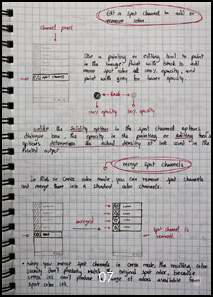 Edit a spot channel to add or
remove color.
Channels panel
Use a painting or editing tool to paint
in the image. Paint with black to add
more spot color at 100% opacity; and
paint with gray for lower opacity.
spot channel
100% opacity
50% opacity
Unlike the solidity option in the spot channel options
dialogue box, the opacity in the painting or editing tool's
options determines the actual density of ink used in the
printed output.
merge spot channels
In RGB or CMYK color mode you can remove spot channels
and merge them into a standard color channels.
merged
spot
spot channel is
removed
When you merged spot channels in CMYK mode, the resulting color
usually don't probably match the original spot color, because
CMYK ink can't produce the range of colors available from
spot color inks.
07